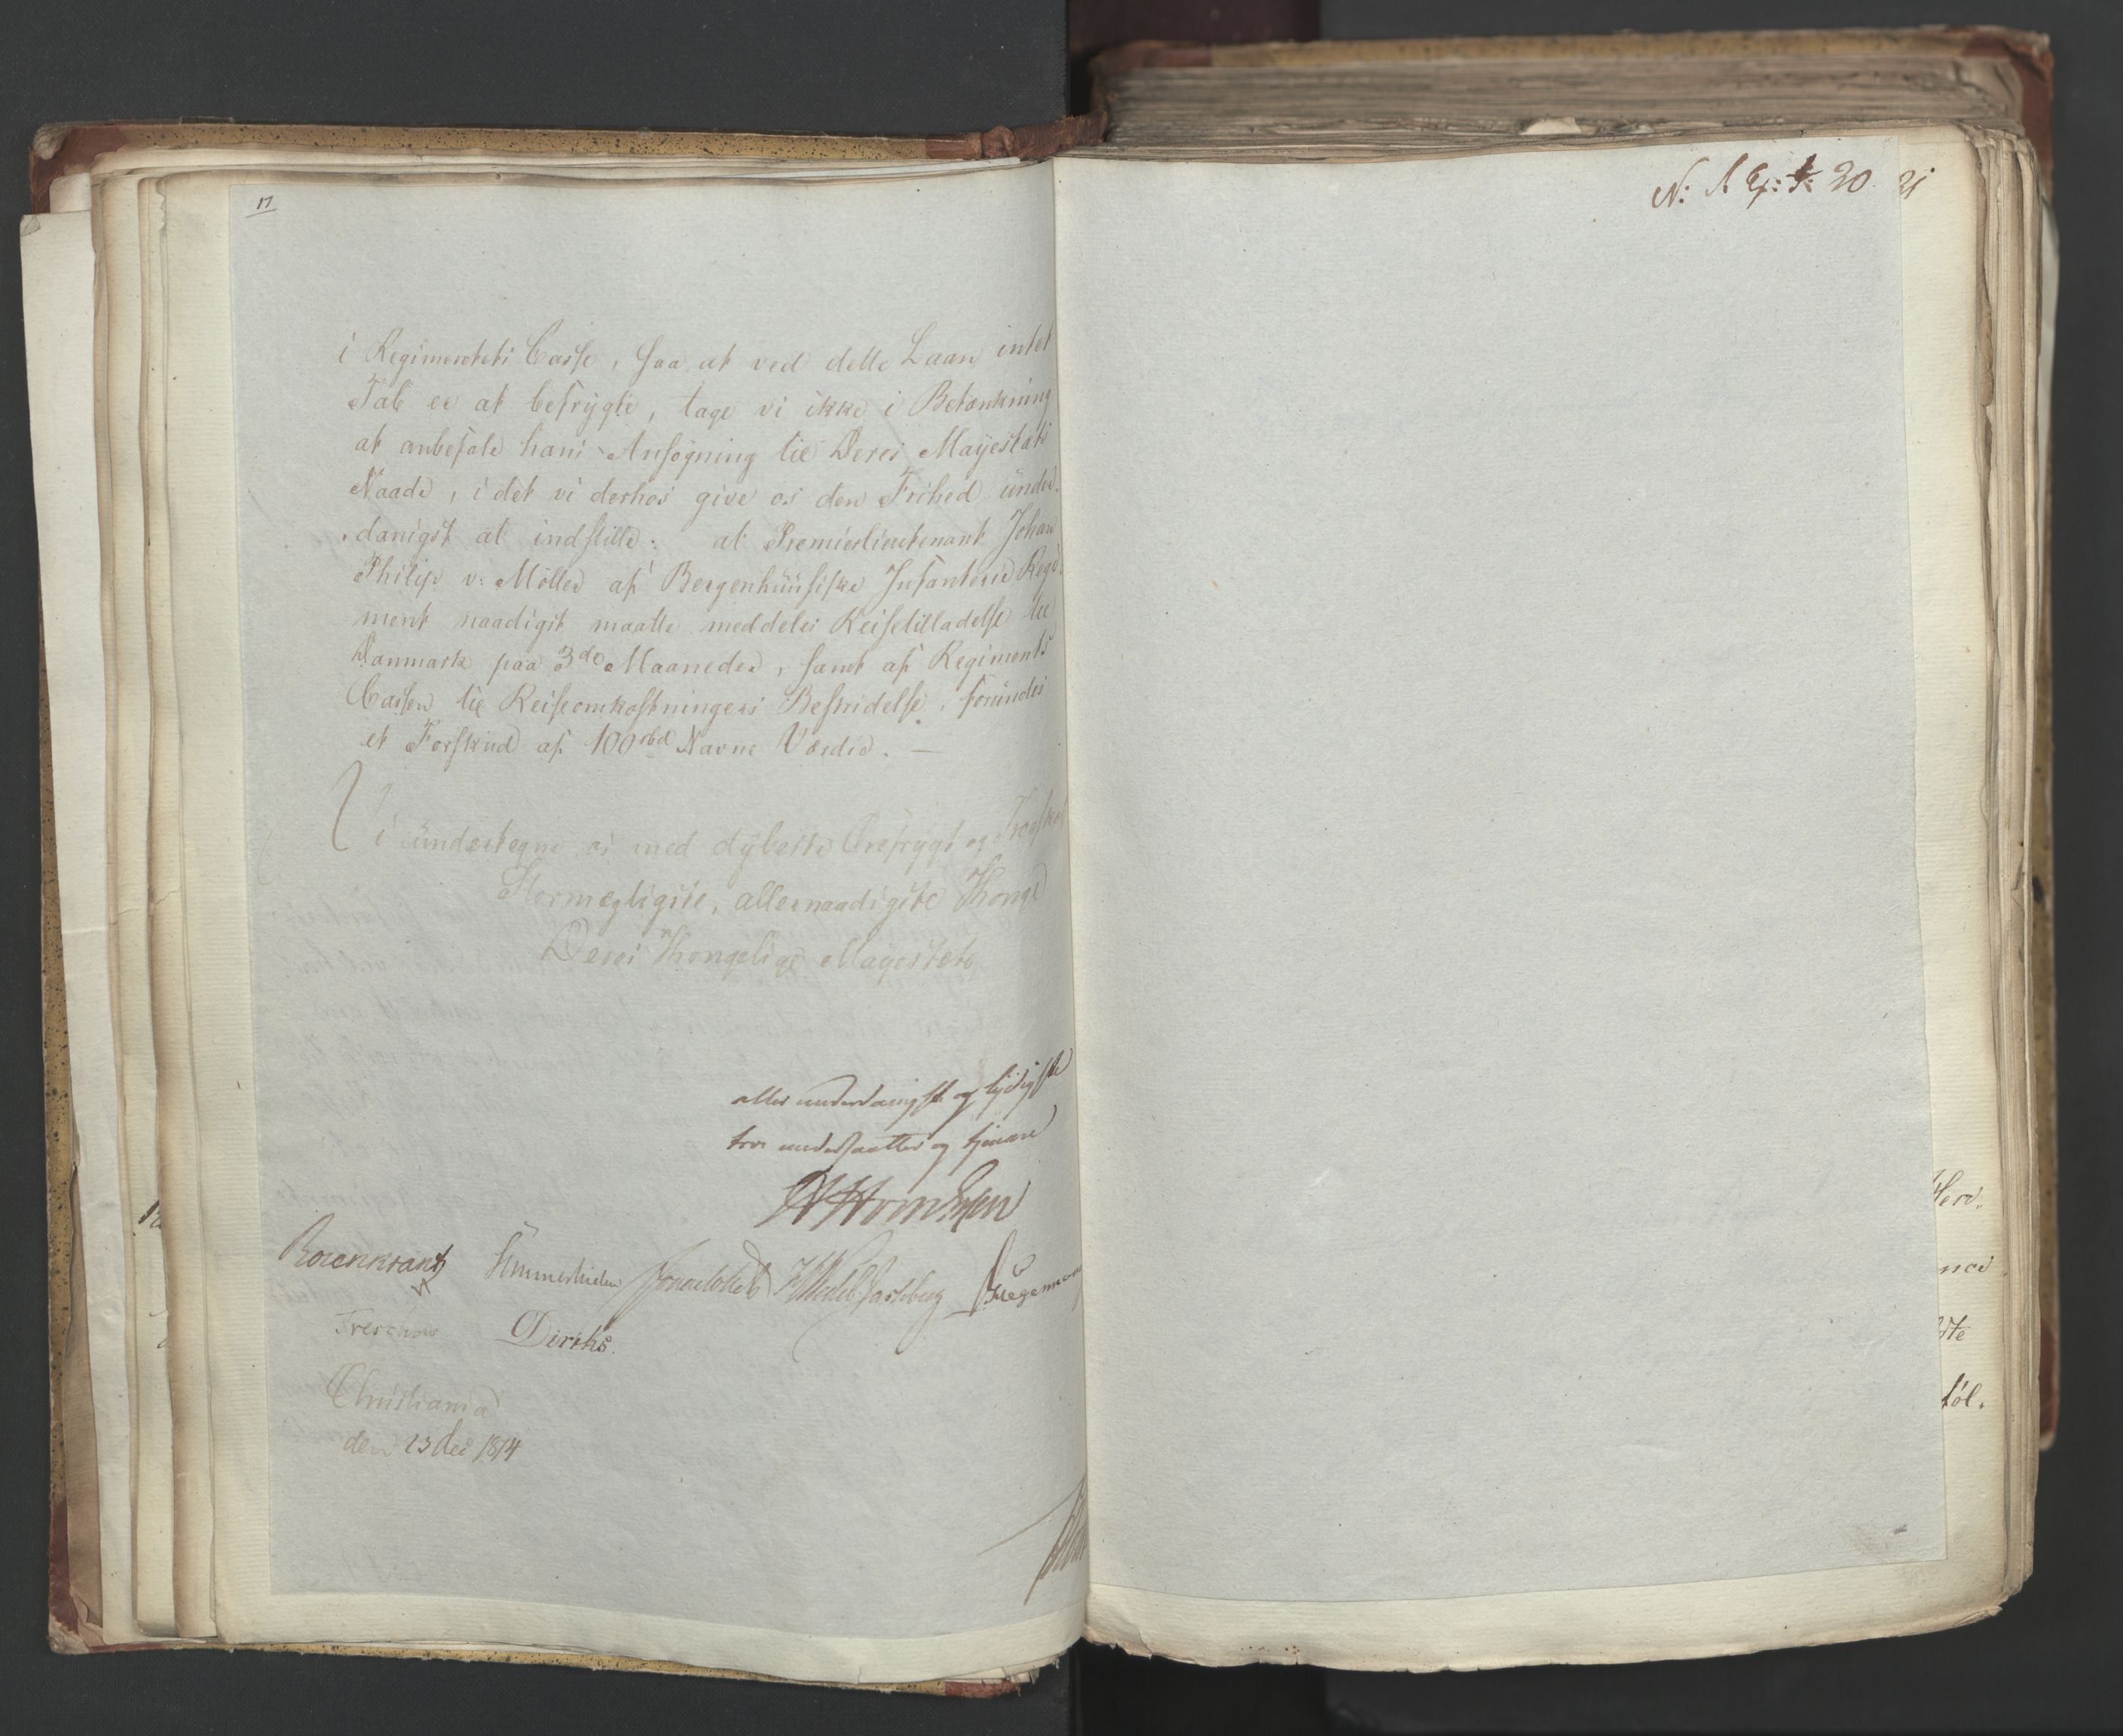 17
i Regimentets Casse, saa at ved dette Laan intet
Tab er at befrygte, tage vi ikke i Betænkning
at anbefale hans Ansøgning til Deres Mayestæts
Naade, i det vi derhos give os den Frihed under-
danigst at indstille: at Premierlieutenant Johan
Philip v: Møller af Bergenhuusiske Infanterie Regi-
ment naadigst maatte meddeles Reisetilladelse til
Danmark paa 3de Maaneder, samt af Regiments
Cassen til Reiseomkostningers Bestridelse, forundes
et Forskud af 100 rbd Navne Værdie. —
Vi undertegne os med dybeste Ærefrygt og Troeskab
Stormægtigste, allernaadigste Konge
Deres Kongelige Mayestæts
aller underdanigste og lydigste
troe undersaatter og tjenere
Rosenkrantz Sommerhielm Wedel Jarlsberg
Treschow Diriks.
Christiania
den 23 Dec 1814
N: 20. 21